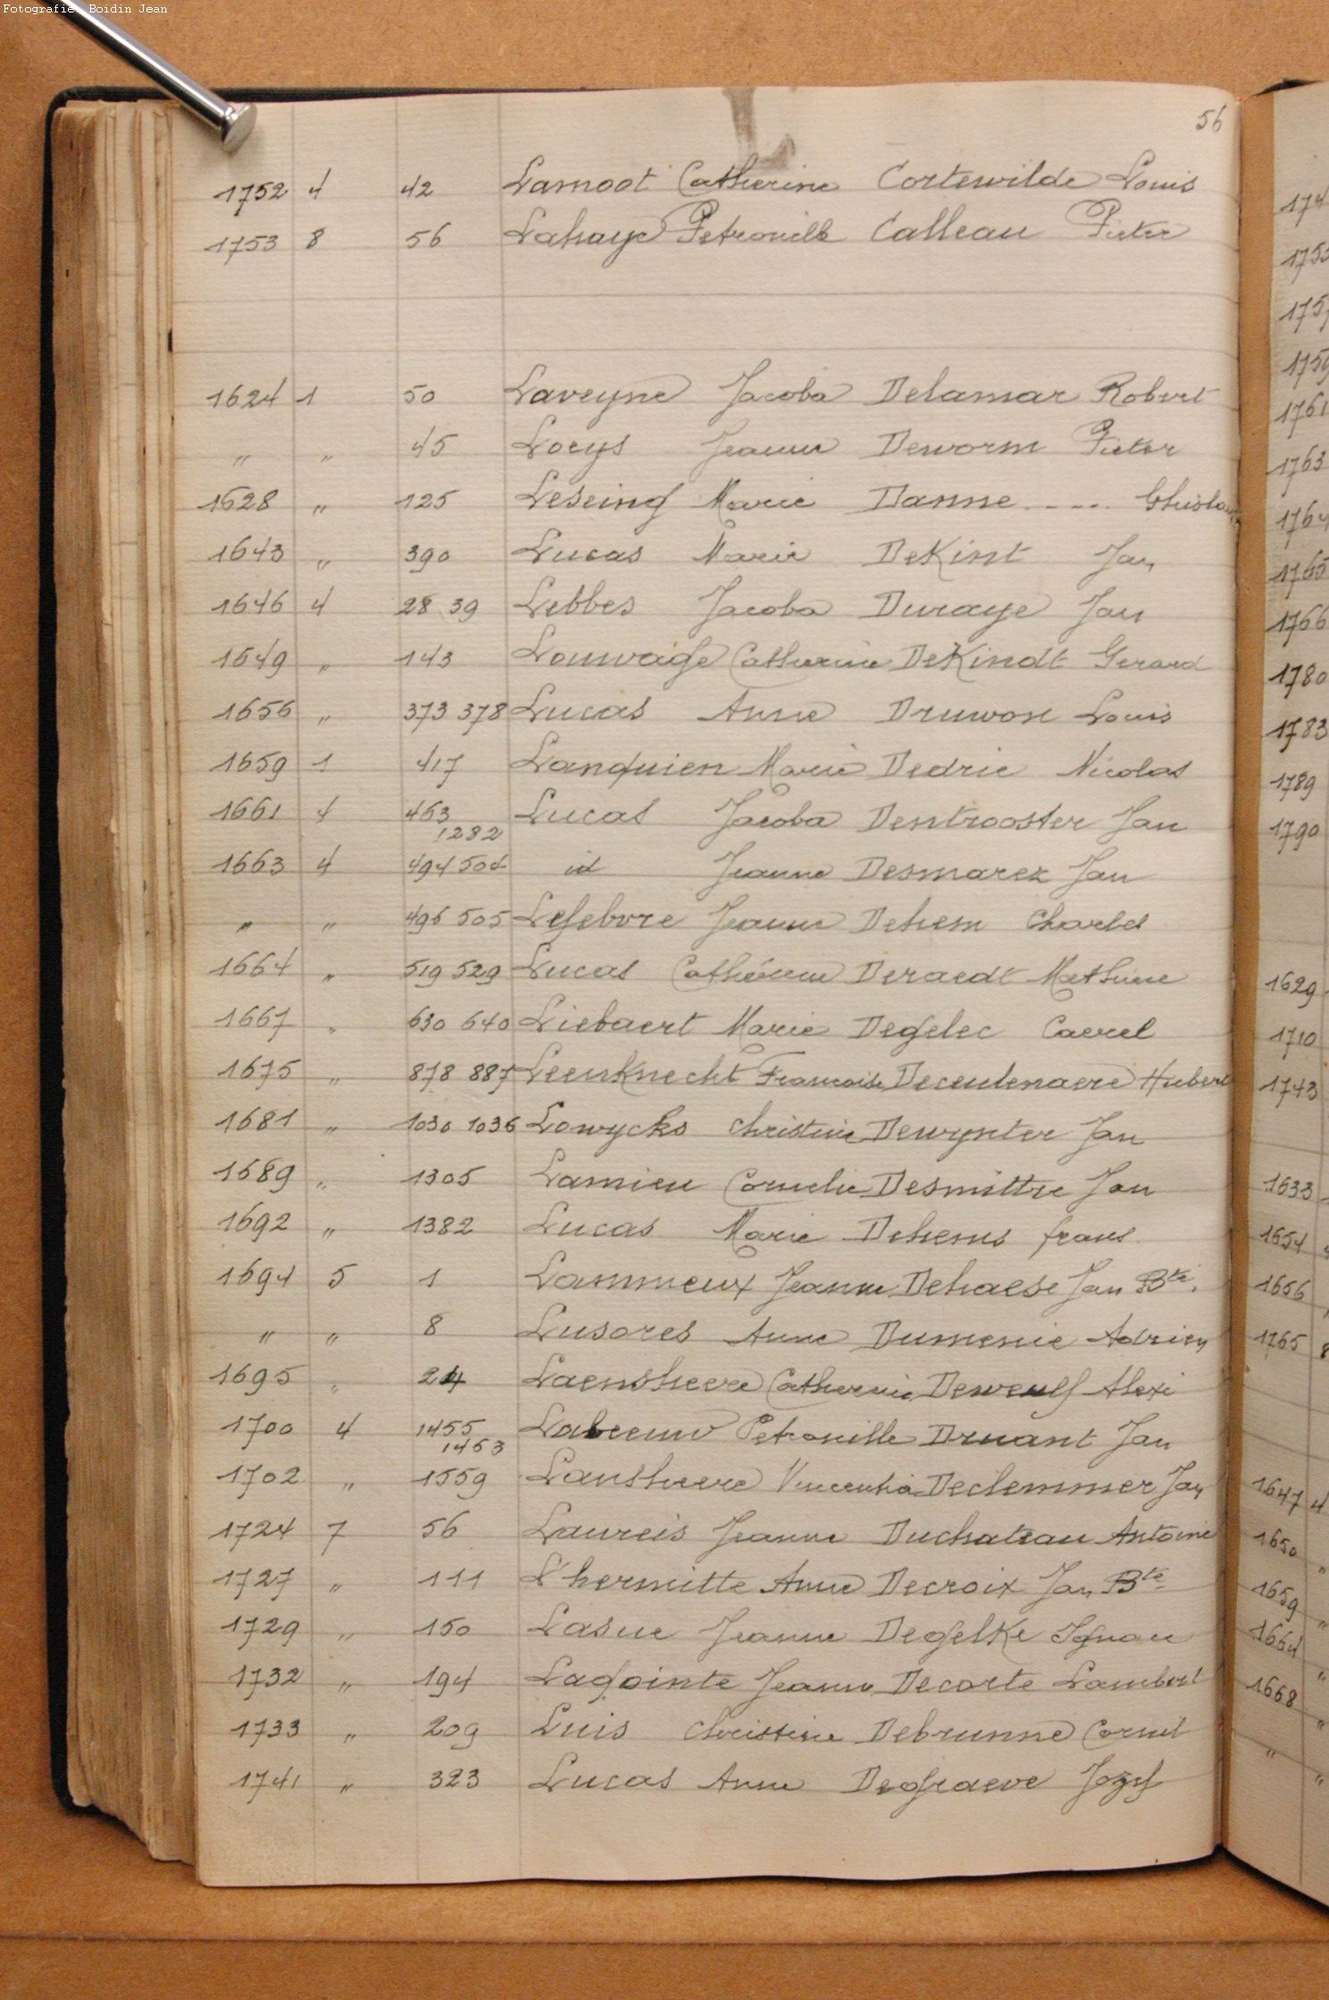 Fotografie: Boidin Jean
56
1752 4 42 Lamoot Catherine Cortewilde Louis
1753 8 56 Lahaye Petronille Calleau Pieter
1624 1 50 Laveyne Jacoba Delamar Robert
" " 45 Loeys Jeanne Deworm Pieter
1628 " 125 Leseing Marie Danne ....
1643 " 390 Lucas Marie DeKint Jan
1646 4 28 39 Lebbes Jacoba Duraye Jan
1649 " 143 Louwaige Catherine DeKindt Gerard
1656 " 373 378 Lucas Anne Druwon Louis
1659 1 417 Lanquien Marie Dedrie Nicolas
1661 4 463 Lucas Jacoba Dentrooster Jan
1282
1663 4 494 504 id Jeanne Desmarez Jan
" " 496 505 Lefebvre Jeanne Dehem Charles
1664 " 519 529 Lucas Catherine Deraedt Mathieu
1667 " 630 640 Liebaert Marie Degelec Caerel
1675 " 878 887 Leenknecht Francoise Deceulenaere Hubert
1681 " 1030 1036 Lowycks Christine Dewynter Jan
1689 " 1305 Lamieu Cornelie Desmittre Jan
1692 " 1382 Lucas Marie Dehems frans
1694 5 1 Lammeux Jeanne Dehaese Jan Bte.
" " 8 Lusores Anne Dumenie Adrien
1695 " 24 Laensheere Catherine Deweulf Alexi
1700 4 1455 Labeeuw Petronille Druant Jan
1463
1702 " 1559 Lansheere Vincentia Declemmer Jan
1724 7 56 Laureis Jeanne Duchateau Antoine
1727 " 111 L'hermitte Anne Decroix Jan Bte
1729 " 150 Lasue Jeanne Degelke Ignace
1732 " 194 Lagointe Jeanne Decorte Lambert
1733 " 209 Luis Christine Debrunne Cornel
1741 " 323 Lucas Anne Degraeve Jozef
1763
1766
1780
1783
1789
1790
1629
1710
1743
1633
1654
1656
1765 8
1647 4
1650 "
1659 "
1664 "
1668 "
" "